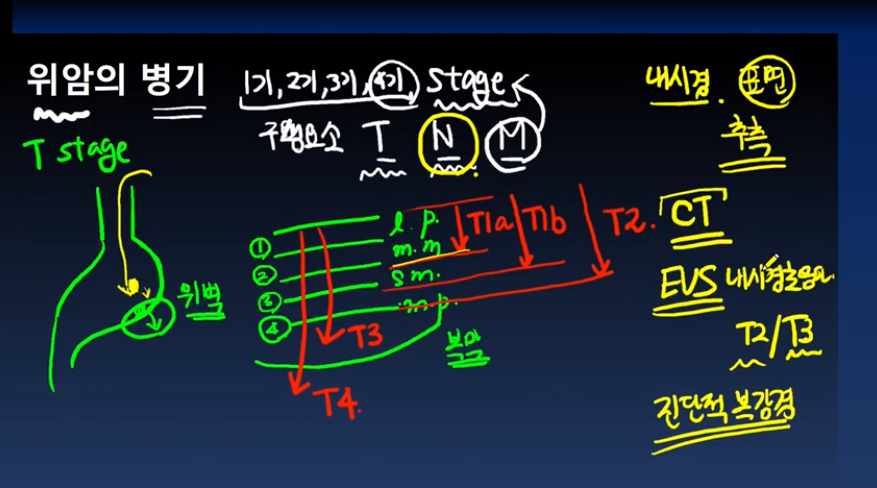 위암의 병기
1기, 2기, 3기, 4기, stage
구성요소 T N M
T stage
위벽
① l. p.
② m. m
③ s m.
④ m. p.
T1a T1b T2.
T3
T4.
복막
내시경. 표면
추측
CT
EUS 내시경초음파
T2/T3
진단적 복강경